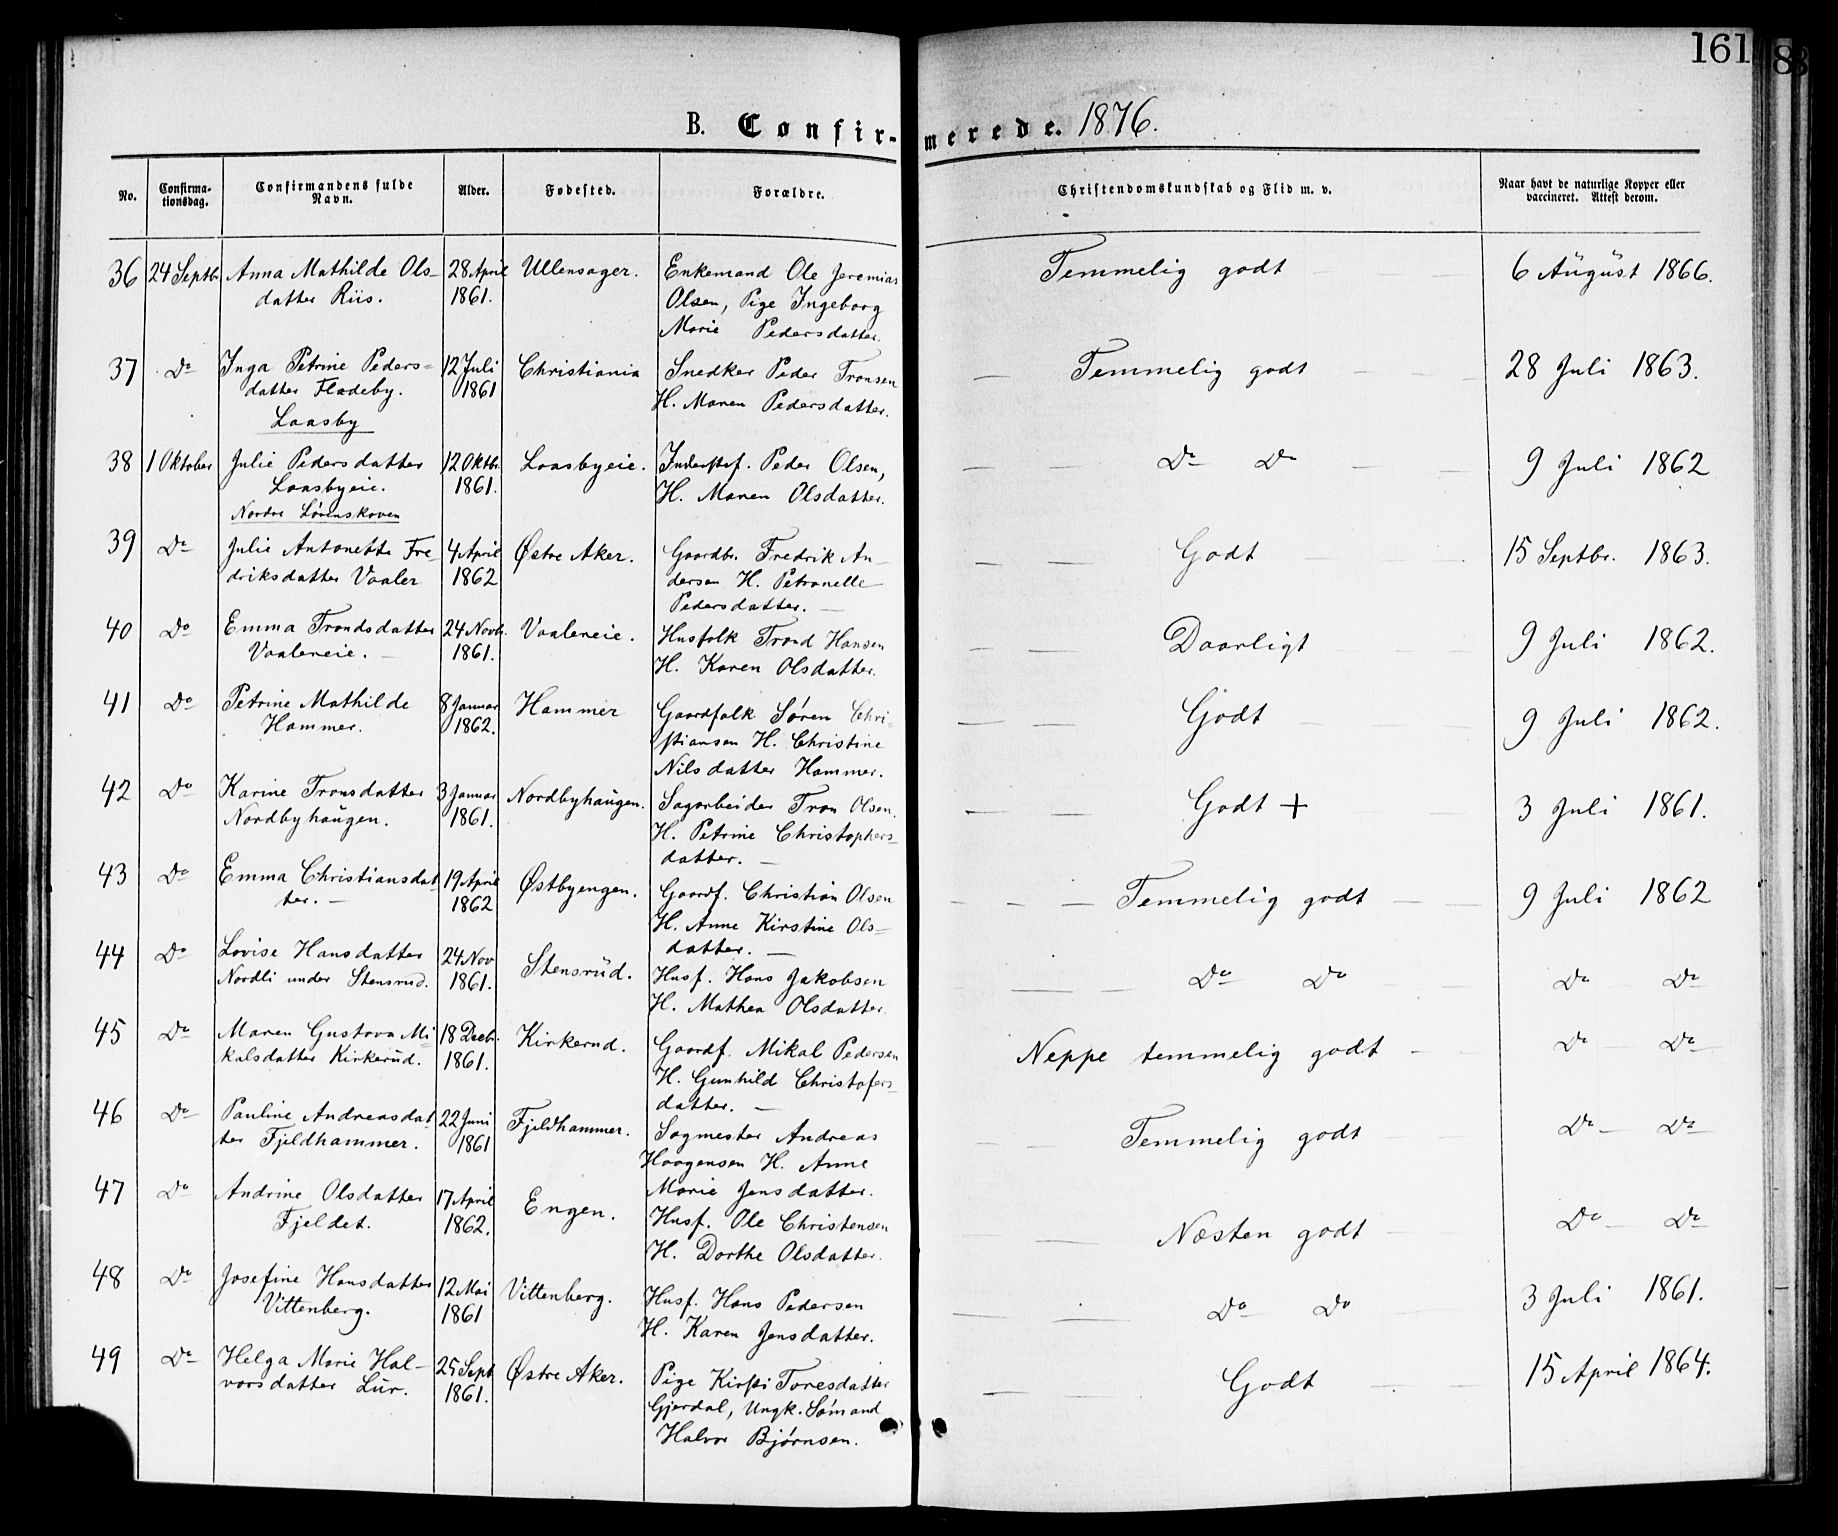 161
8
B. Confir-merede. 1876.
No.
Confirma-
tionsdag.
Confirmandens fulde
Navn.
Alder.
Fødested.
Forældre.
Christendomskundskab og Flid m. v.
Naar havt de naturlige Kopper eller
vaccineret. Attest derom.
36 24 Septbr. Anna Mathilde Ols- 28 April Ullensager. Enkemand Ole Jeremias Temmelig godt 6 August 1866.
datter Riis. 1861. Olsen, Pige Ingeborg
Marie Pedersdatter.
37 Do Inga Petrine Peders= 12 Juli Christiania Snedker Peder Tronsen Temmelig godt 28 Juli 1863.
datter Fladeby. 1861 H. Maren Pedersdatter.
Laasby
38 1 Oktober Julie Pedersdatter 12 Oktbr. Laasbyeie. Inderstf. Peder Olsen, Do Do 9 Juli 1862
Laasbyeie. 1861. H. Maren Olsdatter.
Nordre Lørenskoven
39 Do Julie Antonette Fre- 4 April Østre Aker. Gaardbr. Fredrik An- Godt 15 Septbr. 1863.
driksdatter Vaaler 1862 dersen H. Petronelle
Pedersdatter. —
40 Do Emma Trondsdatter 24 Novb. Vaalereie. Husfolk Trond Hansen Daarligt 9 Juli 1862.
Vaalereie. — 1861. H. Karen Olsdatter.
41 Do Petrine Mathilde 8 Januar Hammer Gaardfolk Søren Chri- Godt 9 Juli 1862.
Hammer. 1862. stiansen H. Christine
Nilsdatter Hammer.
42 Do Karine Tronsdatter 3 Januar Nordbyhaugen. Sagarbeider Tron Olsen. Godt + 3 Juli 1861.
Nordbyhaugen. 1861. H. Petrine Christophers=
datter. —
43 Do Emma Christiansdat 19 April Østbyengen. Gaardf. Christian Olsen Temmelig godt 9 Juli 1862
ter. — 1862 H. Anne Kirstine Ols=
datter. —
44 Do Lovise Hansdatter 24 Nov Stensrud. Husf. Hans Jakobsen Do Do Do Do
Nordli under Stensrud. 1861. H. Mathea Olsdatter.
45 Do Maren Gustava Mi= 18 Decbr. Kirkerud. Gaardf. Mikal Pedersen Neppe temmelig godt Do Do
kalsdatter Kirkerud. 1861. H. Gunhild Christofers-
datter. —
46 Do Pauline Andreasdat 22 Juni Fjeldhammer. Sagmester Andreas Temmelig godt Do Do
ter Fjeldhammer. 1861 Haagensen H. Anne
Marie Jensdatter.
47 Do Andrine Olsdatter 17 April Engen. Husf. Ole Christensen Næsten godt Do Do
Fjeldet. 1862. H. Dorthe Olsdatter.
48 Do Josefine Hansdatter 12 Mai Vittenberg. Husf. Hans Pedersen Do Do 3 Juli 1861.
Vittenberg. 1861 H. Karen Jensdatter.
49 Do Helga Marie Hal- 25 Sept Østre Aker. Pige Kirsti Toresdatter Godt 15 April 1864.
vorsdatter Lur. 1861. Gjerdal, Ungk. Sømand
Halvor Bjørnsen.